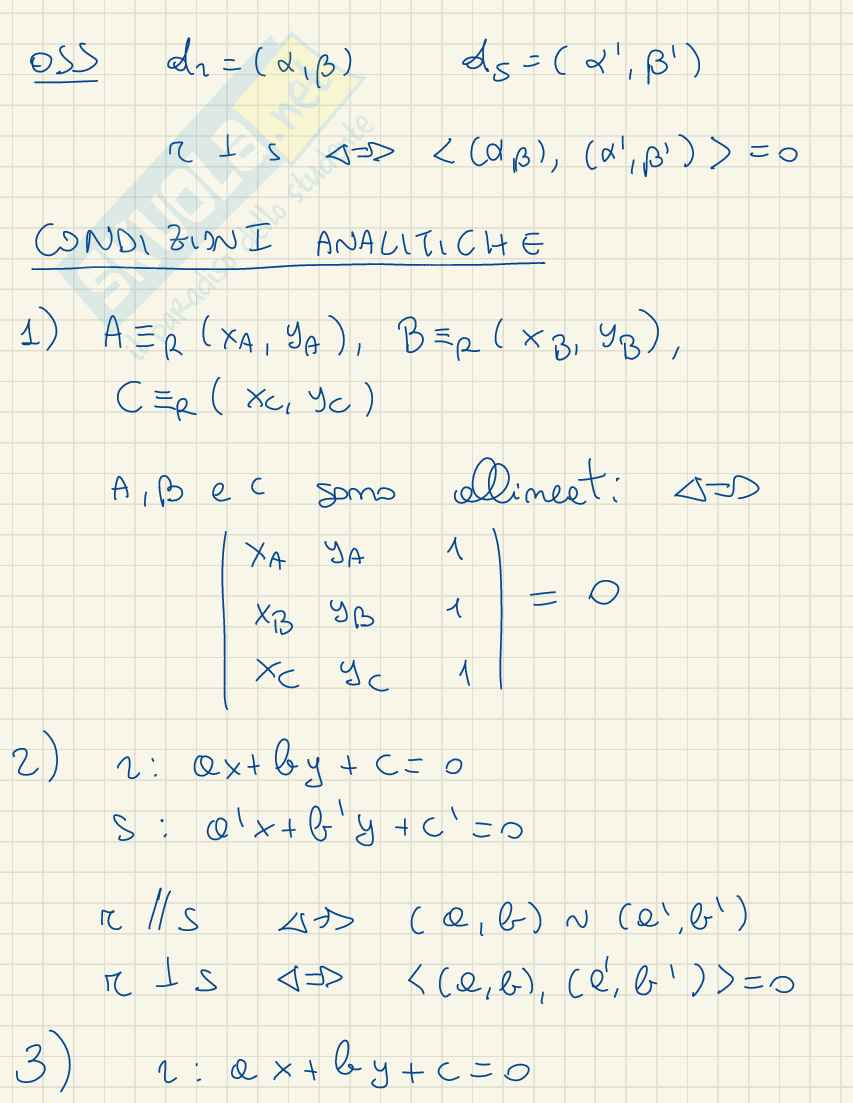 OSS d_r = (α, β) d_s = (α', β')
r ⊥ s <=> <(α, β), (α', β')> = 0
CONDIZIONI ANALITICHE
1) A ≡_R (x_A, y_A), B ≡_R (x_B, y_B),
C ≡_R (x_C, y_C)
A, B e C sono allineati <=>
| x_A y_A 1 |
| x_B y_B 1 | = 0
| x_C y_C 1 |
2) r: ax + by + c = 0
s: a'x + b'y + c' = 0
r // s <=> (a, b) ~ (a', b')
r ⊥ s <=> <(a, b), (a', b')> = 0
3) r: ax + by + c = 0
SKUOLA.net
il paradiso dello studente